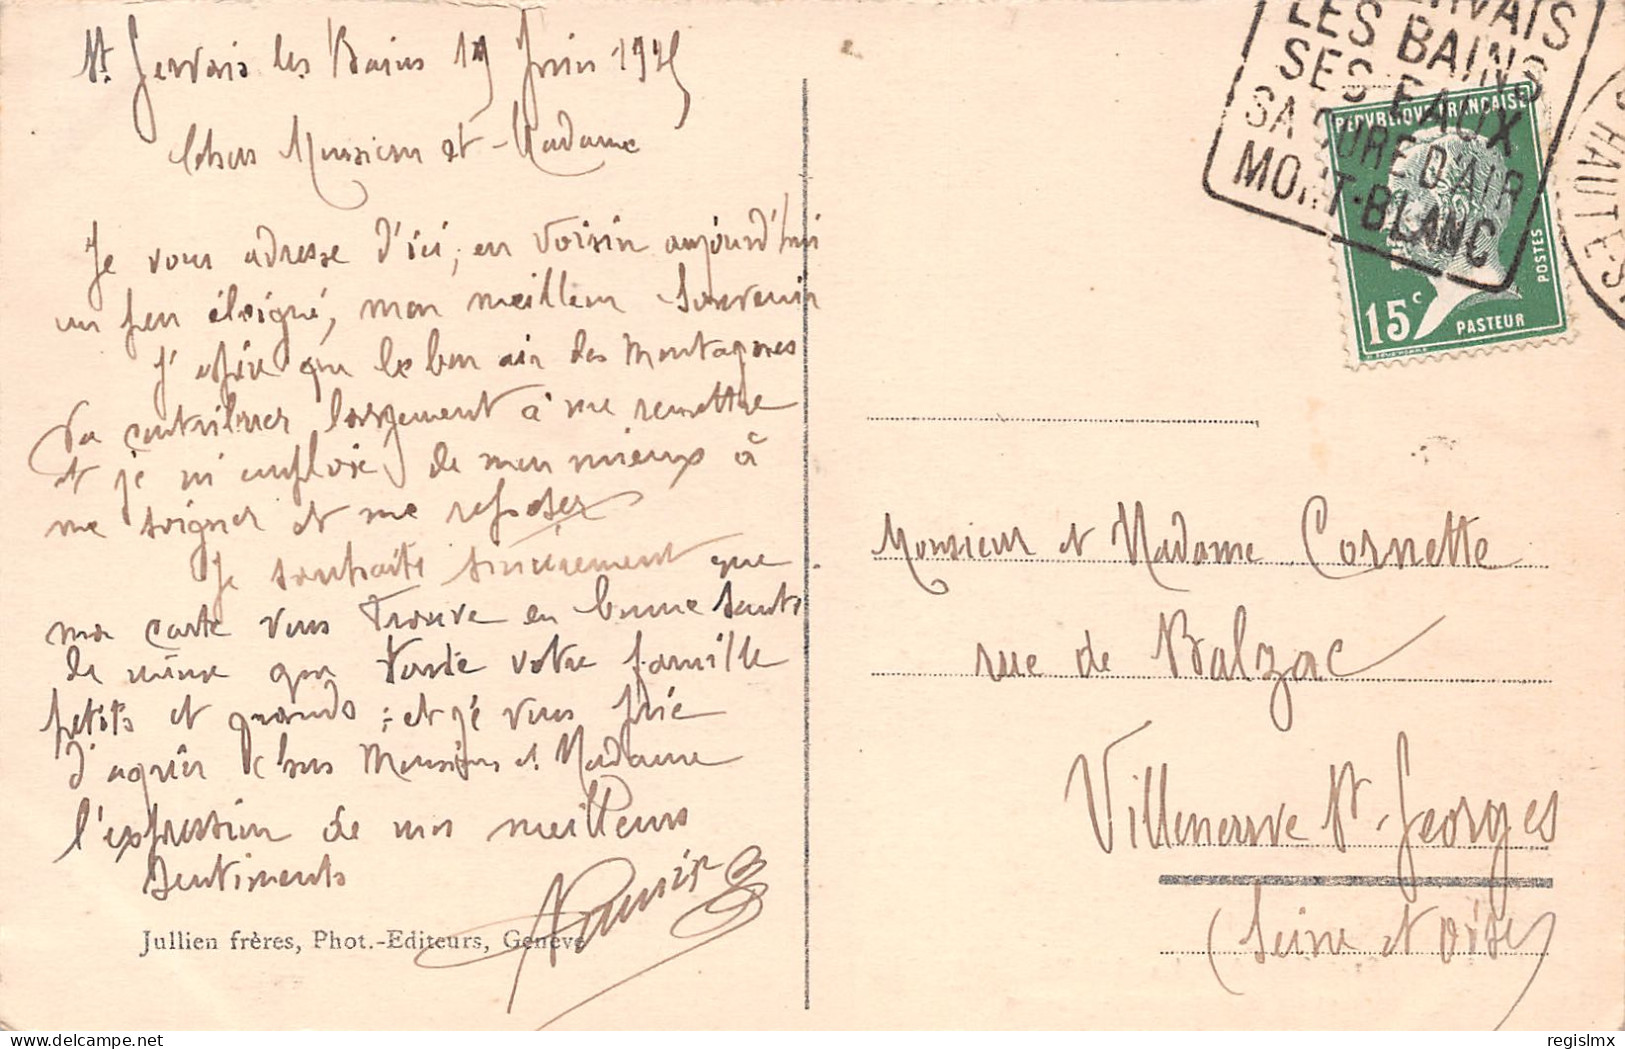 St Gervais les Bains 19 Juin 1925
Chers Monsieur et Madame
Je vous adresse d'ici, en voisin aujourd'hui
un peu éloigné, mon meilleur souvenir
J'espère que le bon air des Montagnes
va contribuer largement à me remettre
et je m'emploie de mon mieux à
me soigner et me reposer
Je souhaite sincèrement que
ma carte vous trouve en bonne santé
de même que toute votre famille
petits et grands ; et je vous prie
d'agréer chers Monsieur et Madame
l'expression de mes meilleurs
sentiments
Jullien frères, Phot.-Editeurs, Genève
RVAIS
LES BAINS
SES EAUX
SA CURE D'AIR
MONT-BLANC
HAUTE-S
REPVBLIQVE FRANCAISE
POSTES
15c
PASTEUR
Monsieur et Madame Cornette
rue de Balzac
Villeneuve St-Georges
(Seine et Oise)
delcampe.net
regislmx